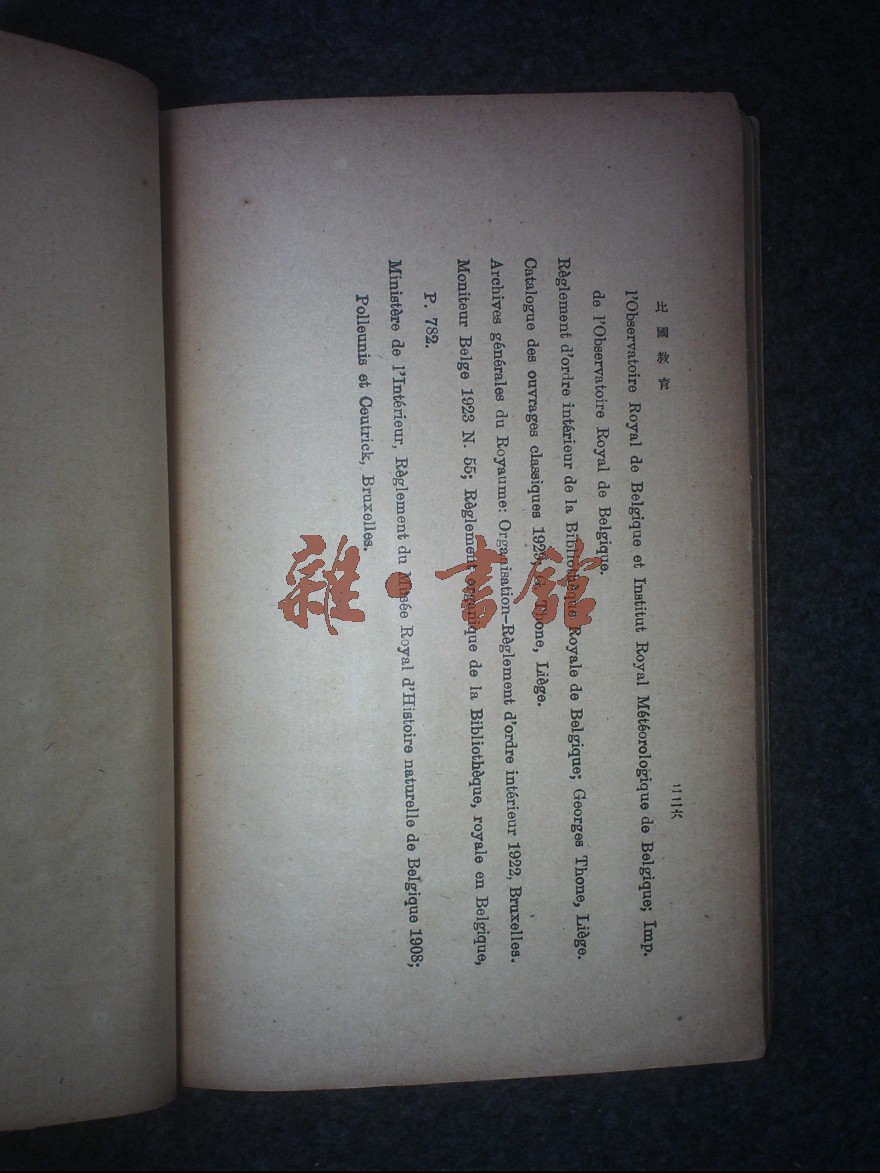 比國教育
二二六
l'Observatoire Royal de Belgique et Institut Royal Météorologique de Belgique; Imp.
de l'Observatoire Royal de Belgique.
Règlement d'ordre intérieur de la Bibliothèque Royale de Belgique; Georges Thone, Liège.
Catalogue des ouvrages classiques 1929; Thone, Liège.
Archives générales du Royaume: Organisation-Règlement d'ordre intérieur 1922, Bruxelles.
Moniteur Belge 1923 N. 55; Règlement organique de la Bibliothèque, royale en Belgique,
P. 782.
Ministère de l'Intérieur, Règlement du Musée Royal d'Histoire naturelle de Belgique 1908;
Polleunis et Ceutrick, Bruxelles.
雜·書館